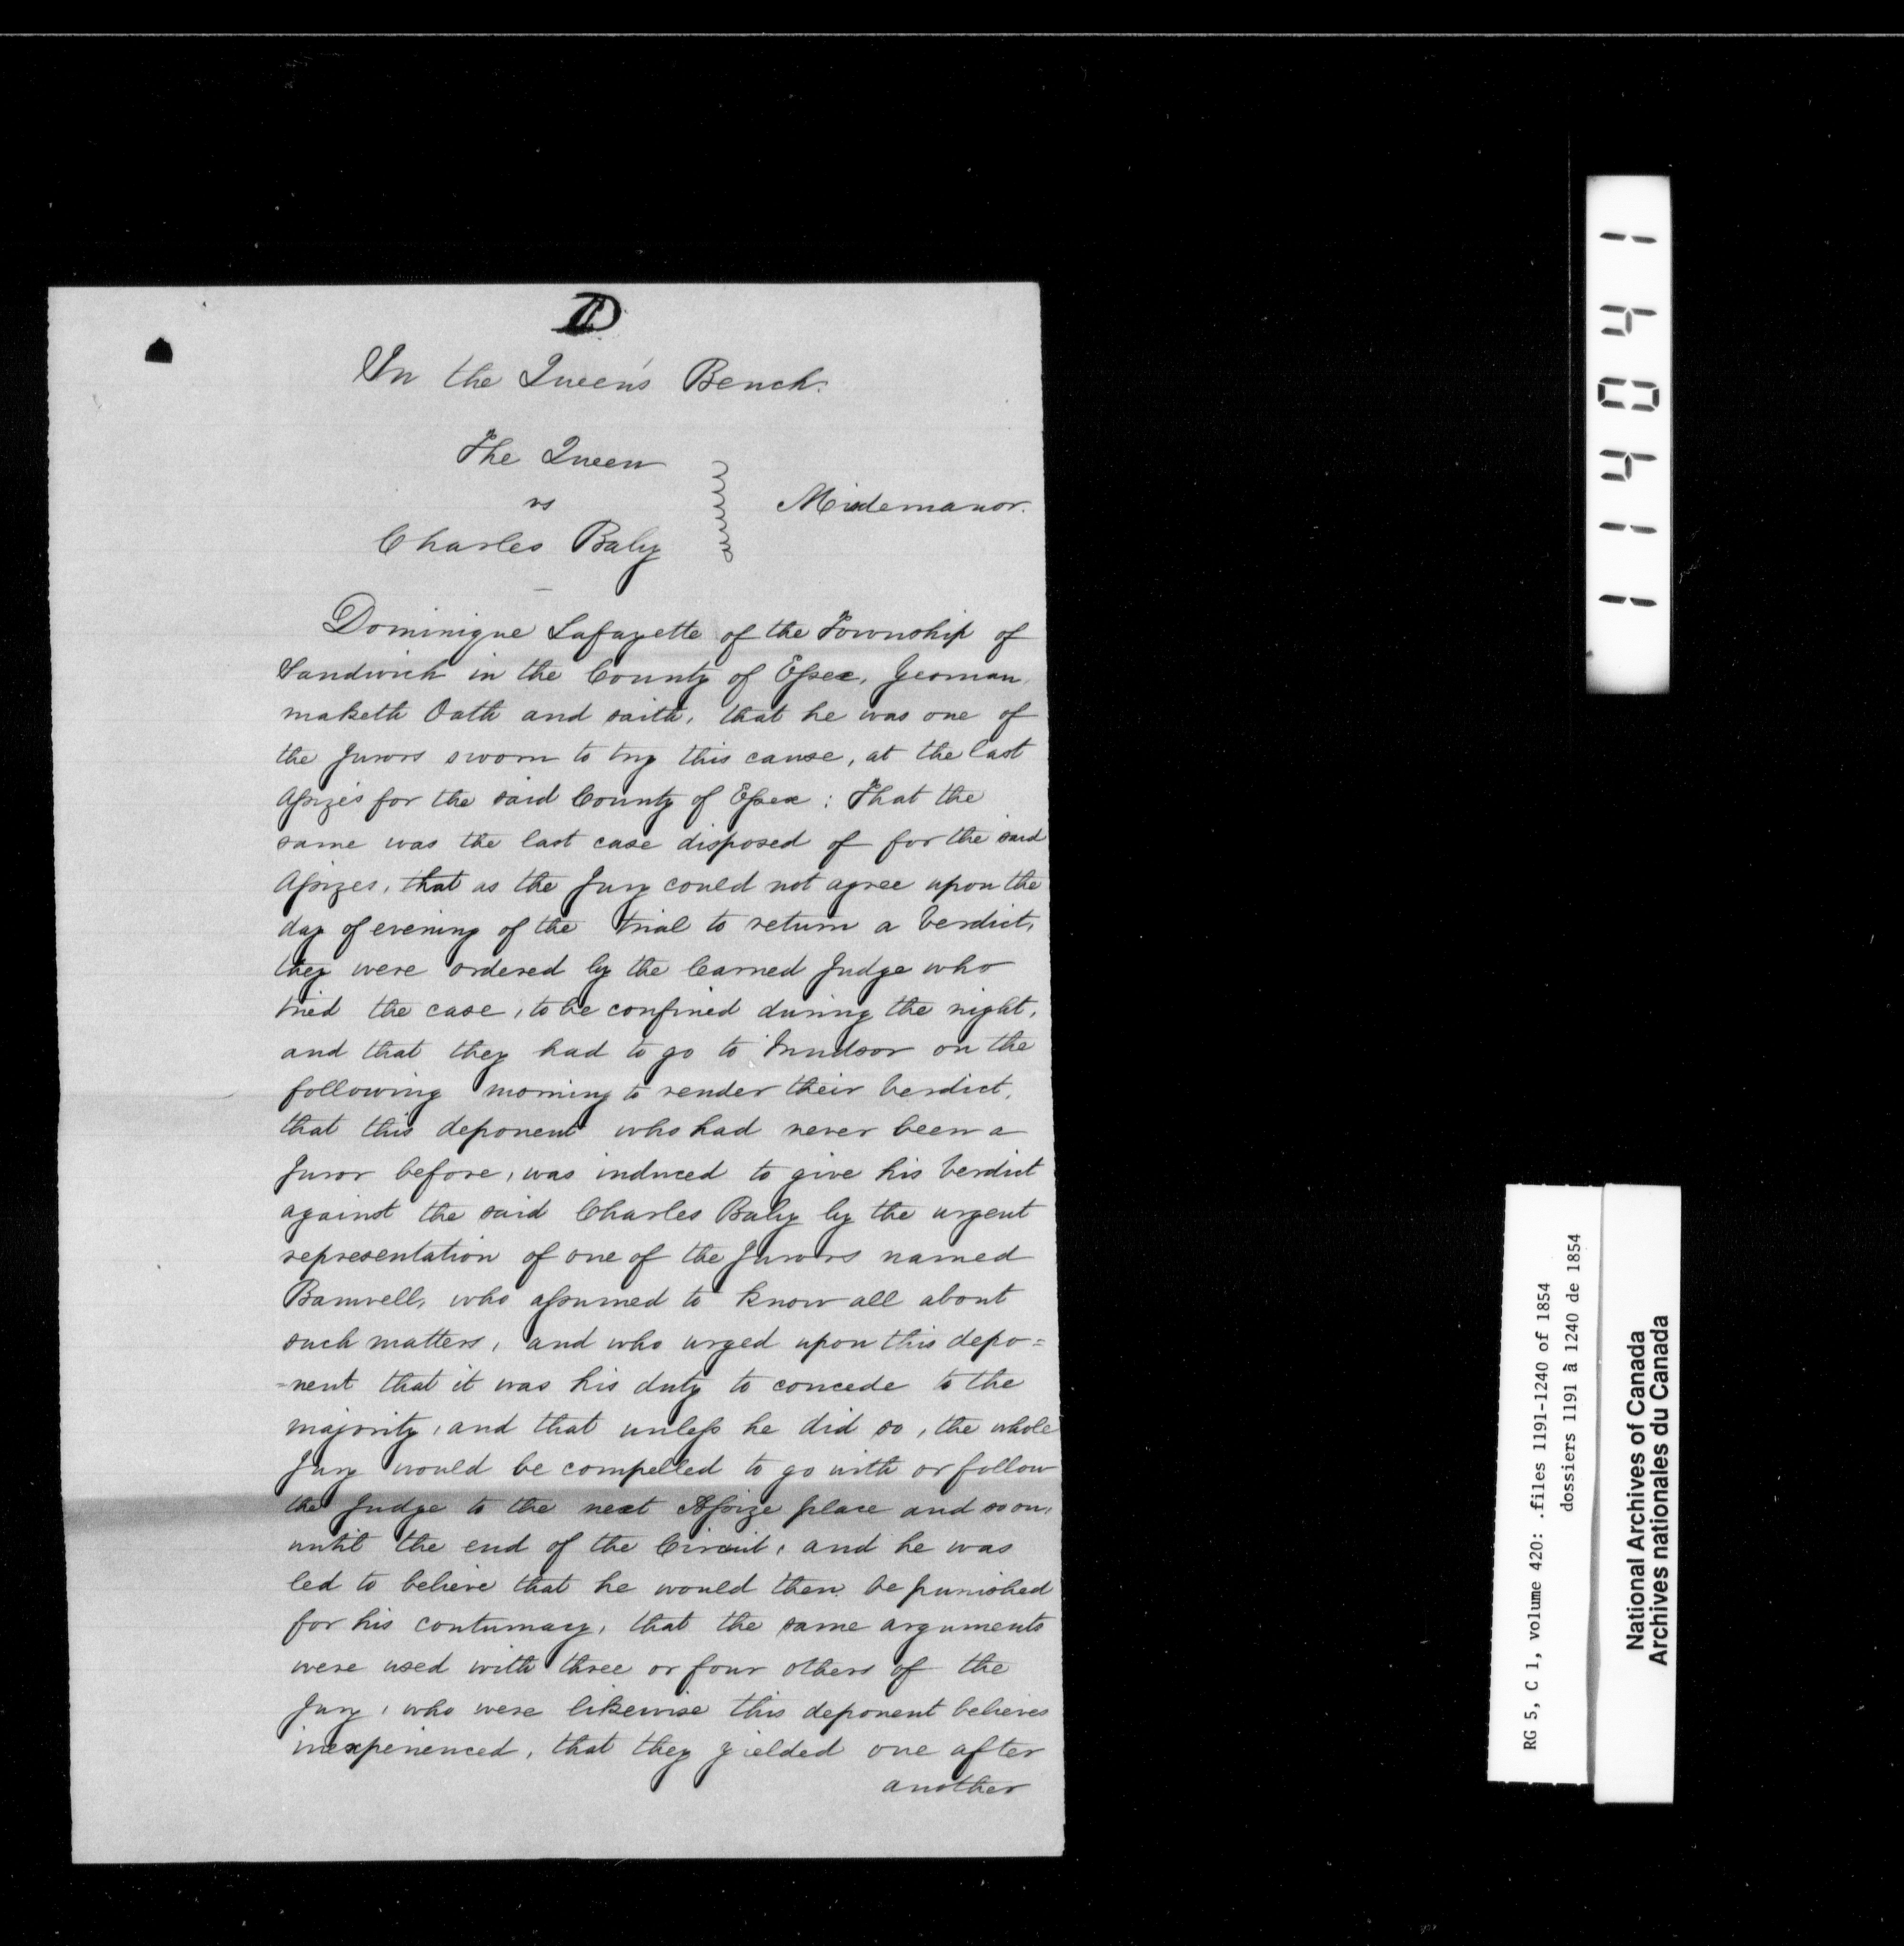 D
In the Queen's Bench.
The Queen
vs
Charles Baby
Misdemanor.
Dominique Lafayette of the Township of
Sandwich in the County of Essex, Yeoman
maketh Oath and saith, that he was one of
the Jurors sworn to try this cause, at the last
Assizes for the said County of Essex : That the
same was the last case disposed of for the said
Assizes, that as the Jury could not agree upon the
day of evening of the trial to return a Verdict,
they were ordered by the learned Judge who
tried the case, to be confined during the night,
and that they had to go to Windsor on the
following morning to render their Verdict,
that this deponent who had never been a
Juror before, was induced to give his Verdict
against the said Charles Baby by the urgent
representation of one of the Jurors named
Bamwell, who assumed to know all about
such matters, and who urged upon this depo=
=nent that it was his duty to concede to the
majority, and that unless he did so, the whole
Jury would be compelled to go with or follow
the Judge to the next Assize place and so on,
until the end of the Circuit, and he was
led to believe that he would then be punished
for his contumacy, that the same arguments
were used with three or four others of the
Jury, who were likewise this deponent believes
inexperienced, that they yielded one after
another
114041
RG 5, C 1, volume 420: .files 1191-1240 of 1854
dossiers 1191 à 1240 de 1854
National Archives of Canada
Archives nationales du Canada